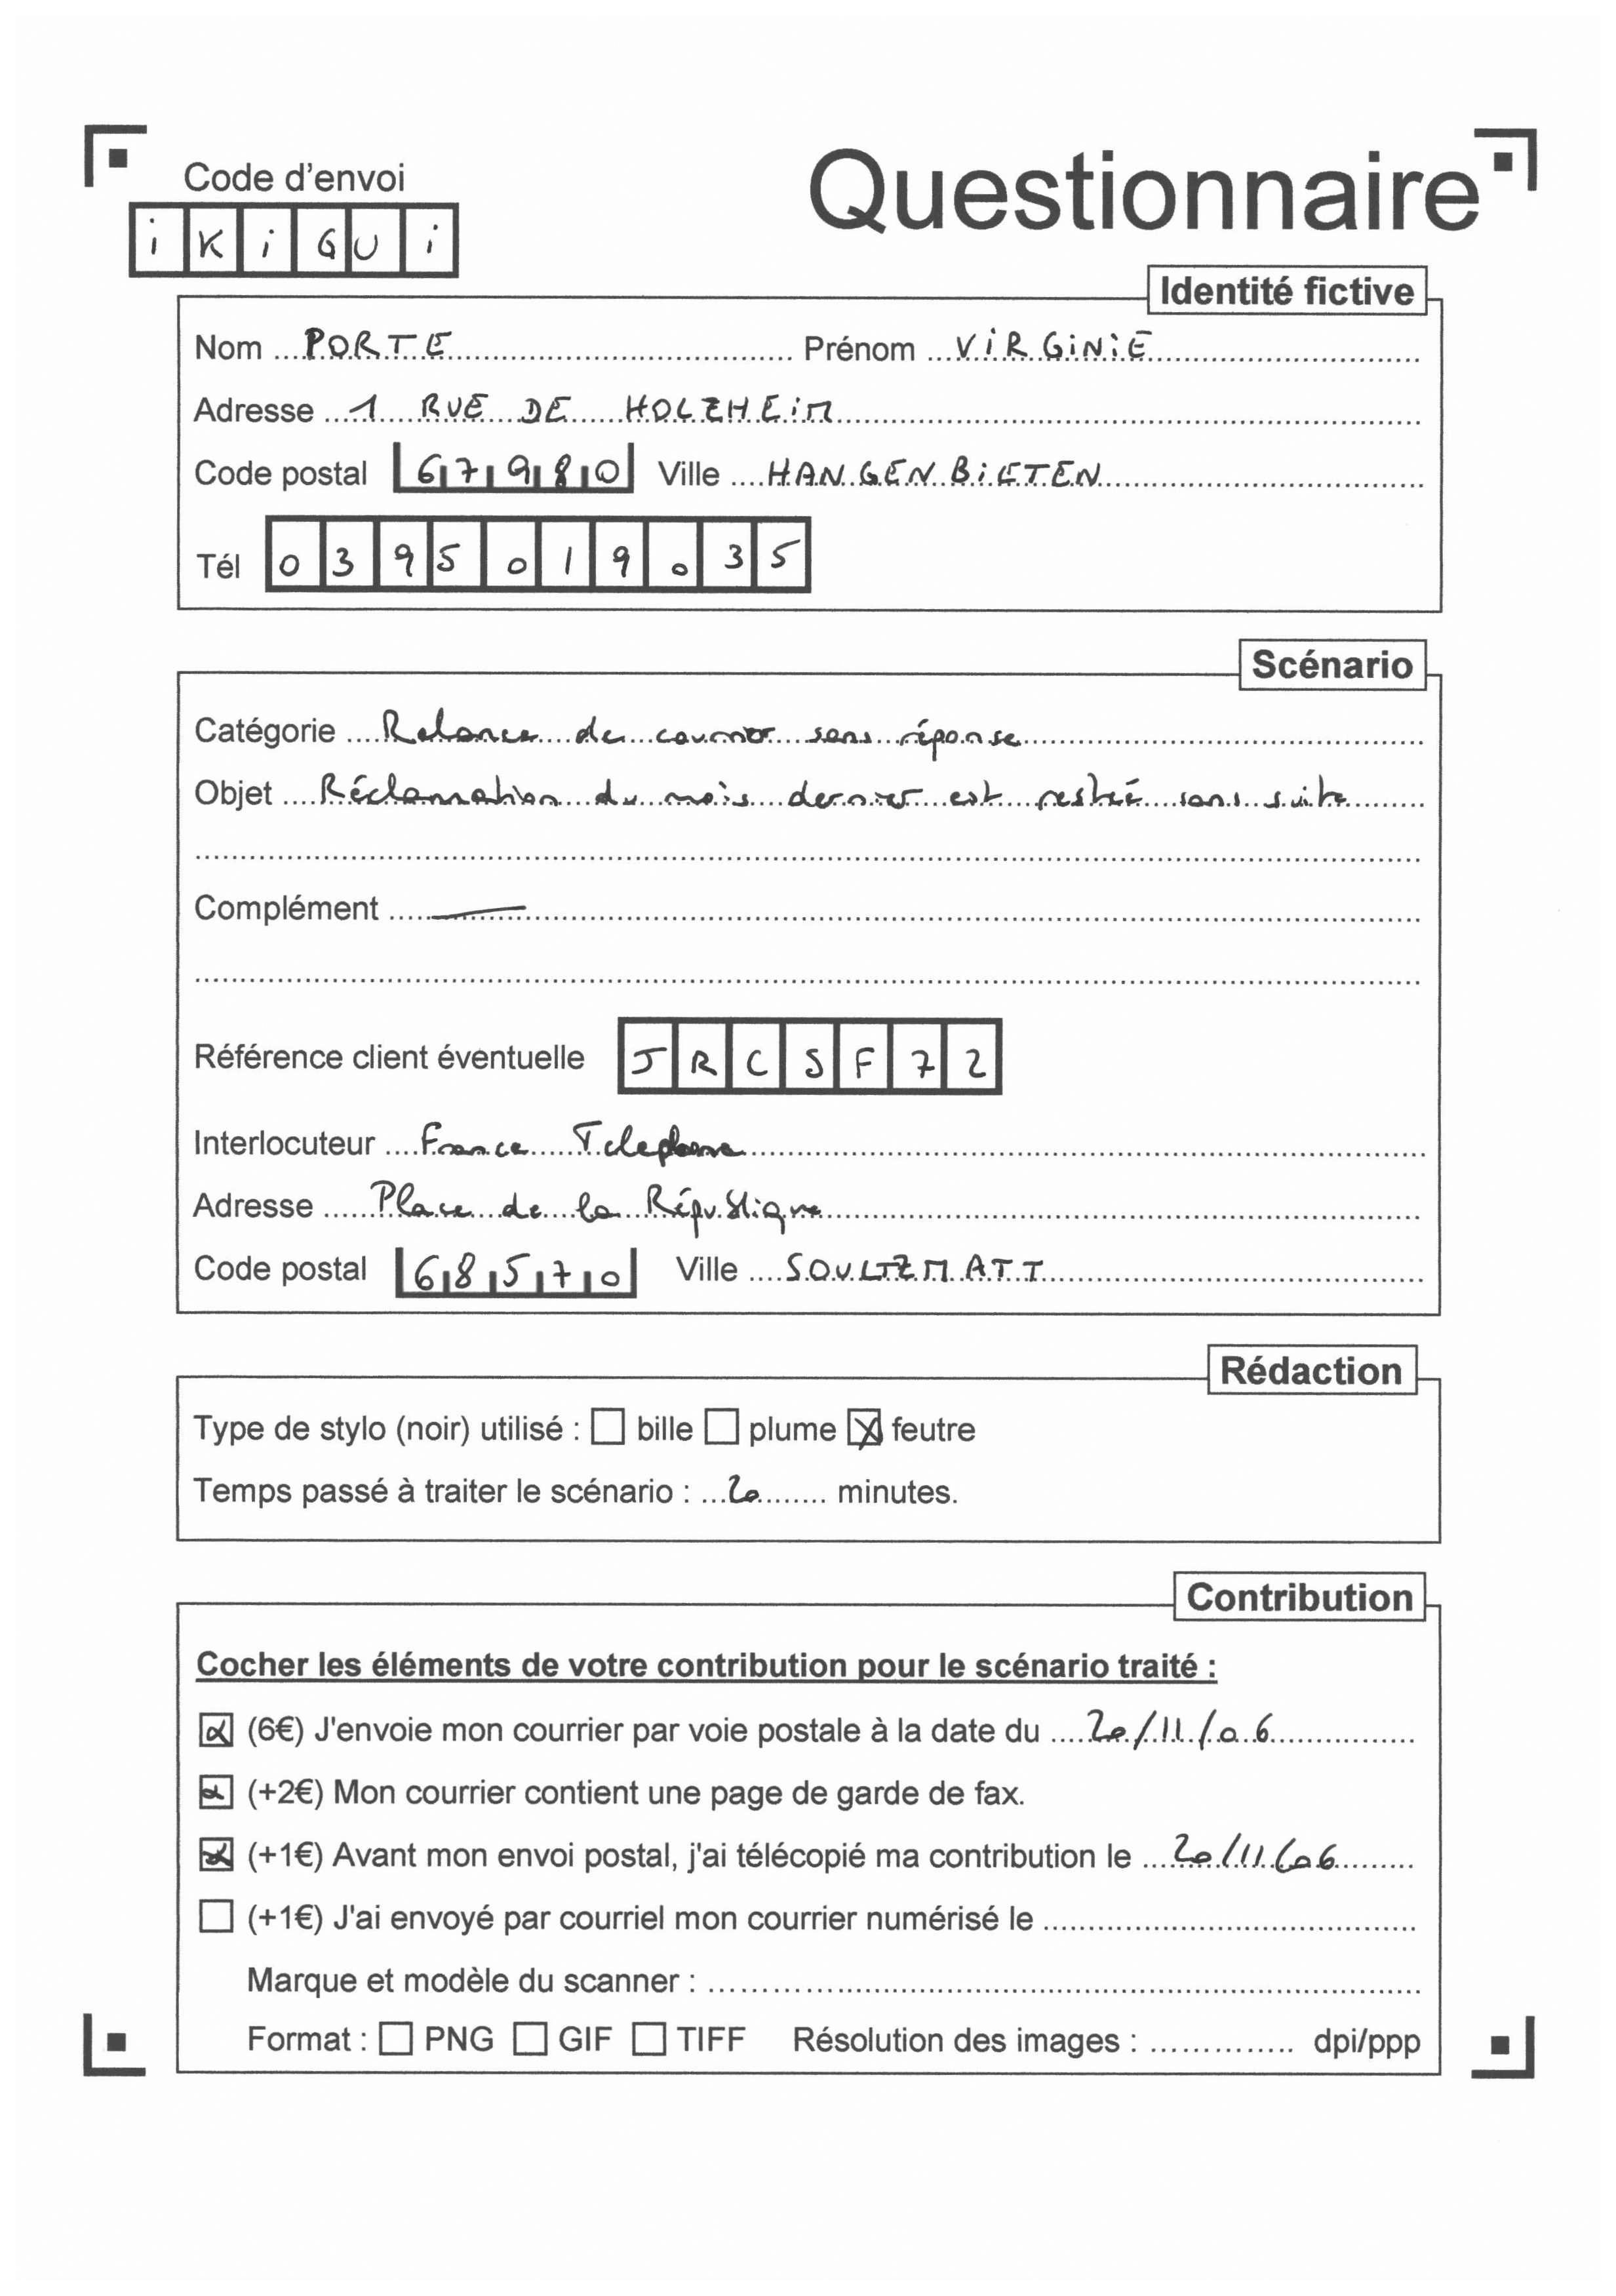 Code d'envoi
Questionnaire
i K i G U i
Identité fictive
Nom PORTE Prénom VIRGINIE
Adresse 1 RUE DE HOLZHEIM
Code postal 67980 Ville HANGENBIETEN
Tél 0395019035
Scénario
Catégorie Relance de courrier sans réponse
Objet Réclamation du mois dernier est restée sans suite
Complément —
Référence client éventuelle JRCSF72
Interlocuteur France Telephone
Adresse Place de la République
Code postal 68570 Ville SOULTZMATT
Rédaction
Type de stylo (noir) utilisé : ☐ bille ☐ plume ☒ feutre
Temps passé à traiter le scénario : 20 minutes.
Contribution
Cocher les éléments de votre contribution pour le scénario traité :
☒ (6€) J'envoie mon courrier par voie postale à la date du 20/11/06
☒ (+2€) Mon courrier contient une page de garde de fax.
☒ (+1€) Avant mon envoi postal, j'ai télécopié ma contribution le 20/11/06
☐ (+1€) J'ai envoyé par courriel mon courrier numérisé le
Marque et modèle du scanner :
Format : ☐ PNG ☐ GIF ☐ TIFF Résolution des images : dpi/ppp